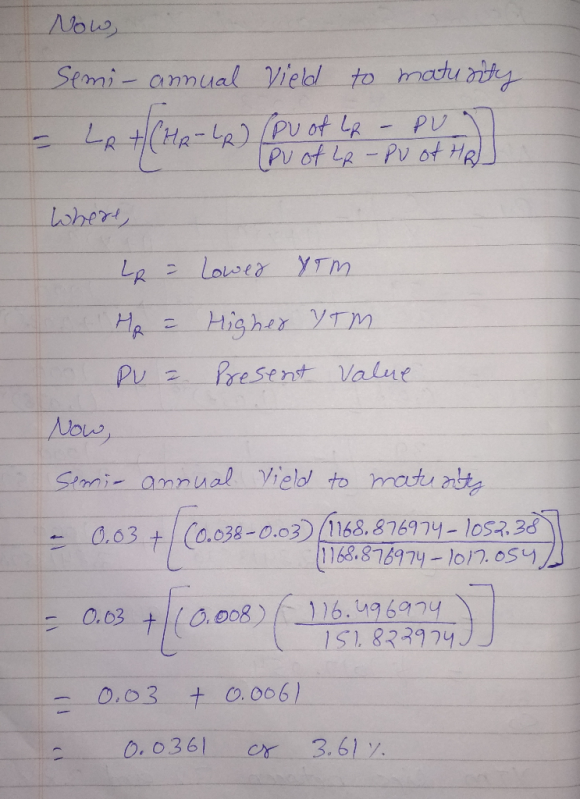 Now,
Semi-annual Yield to maturity
= LR + [(HR - LR) (PV of LR - PV / PV of LR - PV of HR)]
Where,
LR = Lower YTM
HR = Higher YTM
PV = Present Value
Now,
Semi-annual Yield to maturity
= 0.03 + [(0.038-0.03) (1168.876974 - 1052.38 / 1168.876974 - 1017.054)]
= 0.03 + [(0.008) (116.496974 / 151.822974)]
= 0.03 + 0.0061
= 0.0361 or 3.61%.